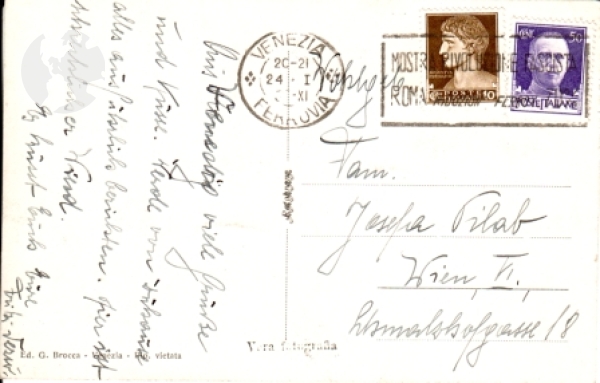 Aus Venedig viele Grüße
und Küsse. Werde von zuhause
alles ausführlich berichten. Hier ist
schrecklicher Wind.
Es küsst Euch Eure
VENEZIA
20-21
24 - I
XI
FERROVIA
MOSTRA RIVOLUZIONE FASCISTA
ROMA
10
50
POSTE ITALIANE
Fam.
Josefa Pilab
Wien, VI.
18
Ed. G. Brocca - Venezia - Rip. vietata
Vera fotografia